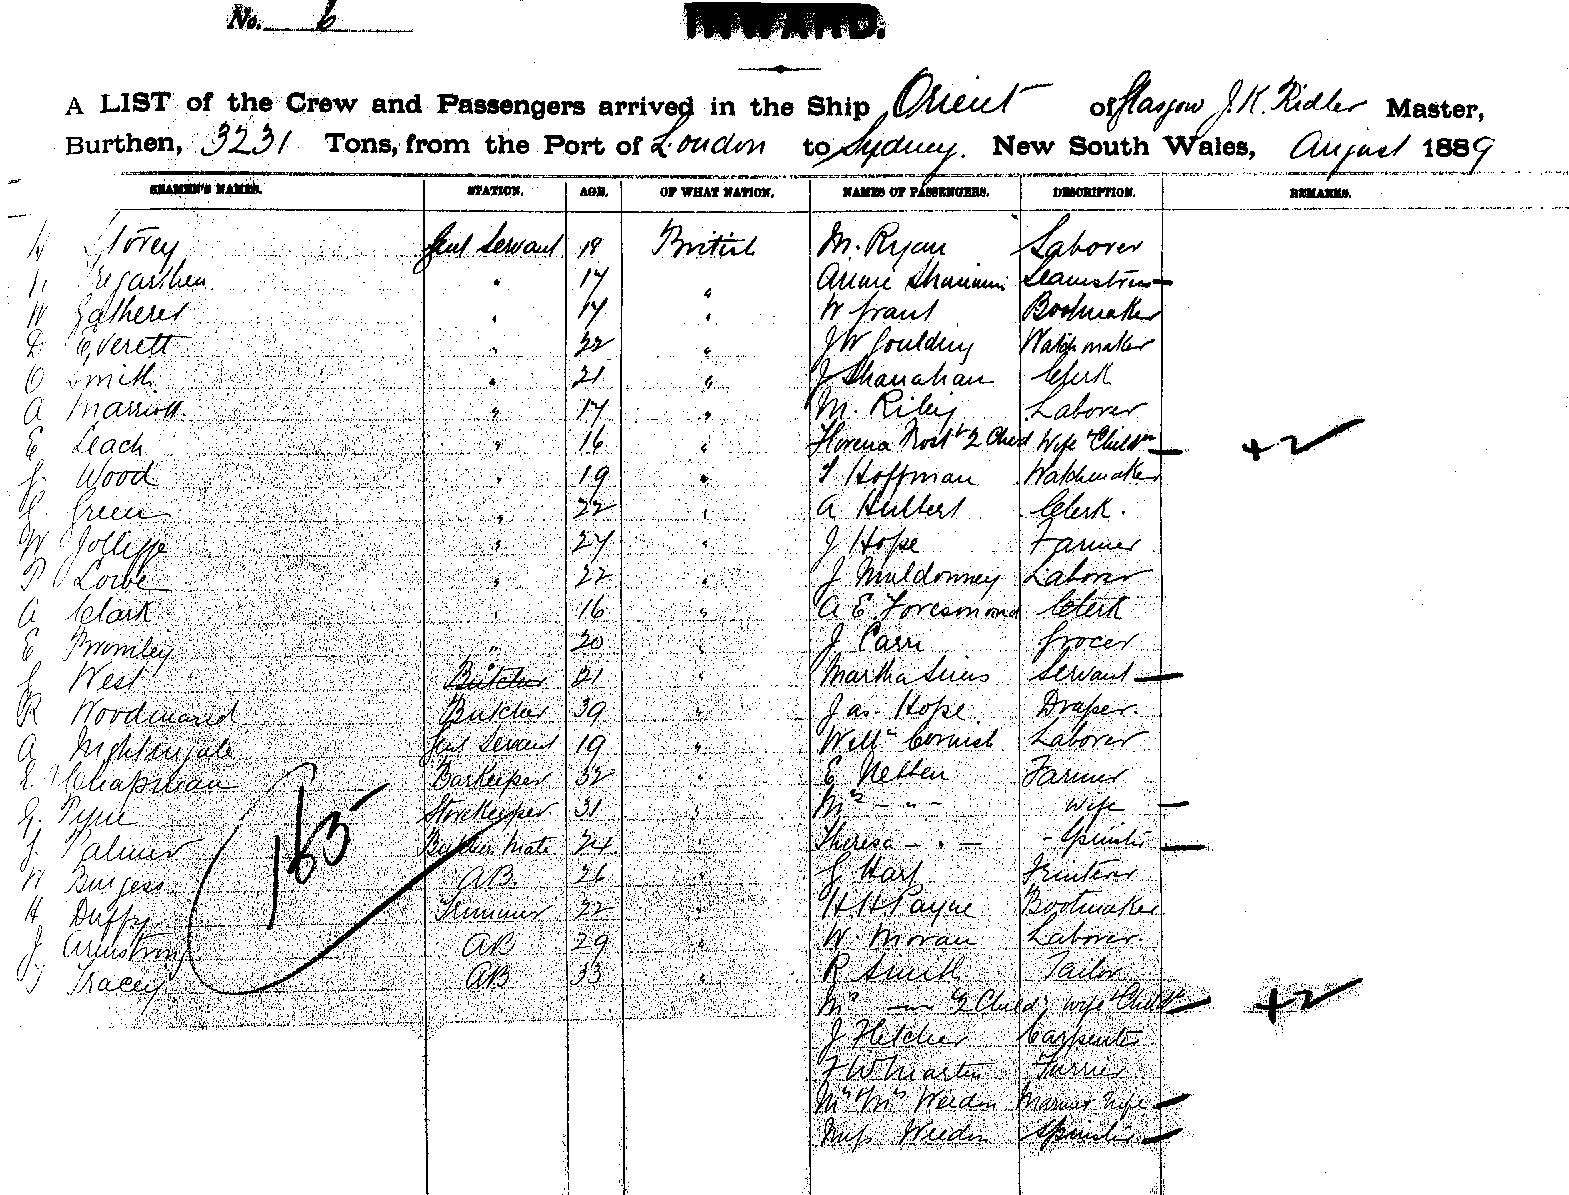 No. 6
INWARD.
A LIST of the Crew and Passengers arrived in the Ship Orient of Glasgow J. K. Ridler Master,
Burthen, 3231 Tons, from the Port of London to Sydney. New South Wales, August 1889
SEAMEN'S NAMES. STATION. AGE. OF WHAT NATION. NAMES OF PASSENGERS. DESCRIPTION. REMARKS.
Storey Genl Servant 18 British M. Ryan Laborer
Tregarthen " 17 " Annie
W Gatherer " 17 " W Grant Bootmaker
D Everett " 22 " J W Goulding Watchmaker
O Smith " 21 " J Shanahan Clerk
A Marriott " 17 " M. Riley Laborer
E Leach " 16 " 2 Child Wife & Childn + 2
J. Wood " 19 " Hoffman Watchmaker
Green " 22 " A Hulbert Clerk.
W Jolliffe " 27 " J Hope Farmer
P " 22 " J Muldonney Laborer
A Clark " 16 " A E Clerk
E Bromley " 20 J Carr Grocer
J West Butcher 21 " Martha Sims Servant
R Woodward Butcher 39 " Jas. Hope Draper.
A Nightingale Genl Servant 19 " Willm Cornish Laborer
Chapman Barkeeper 32 " E Netten Farmer
G. Pyne Storekeeper 31 " Mrs — " — wife
J Palmer Butchers Mate 24 " Theresa — " — Spinster
W Burgess AB. 26 " G Hart
H Duffy Trimmer 22 " H H Payne Bootmaker
J Armstrong AB 29 " W. Moran Laborer.
T Tracey AB 33 " R Smith Tailor
163
Mrs — & 2 Childn wife & Childn + 2
J Fletcher Carpenter
F W Martin Farrier
Mr & Mrs Weedon Mariner & Wife
Miss Weedon Spinster